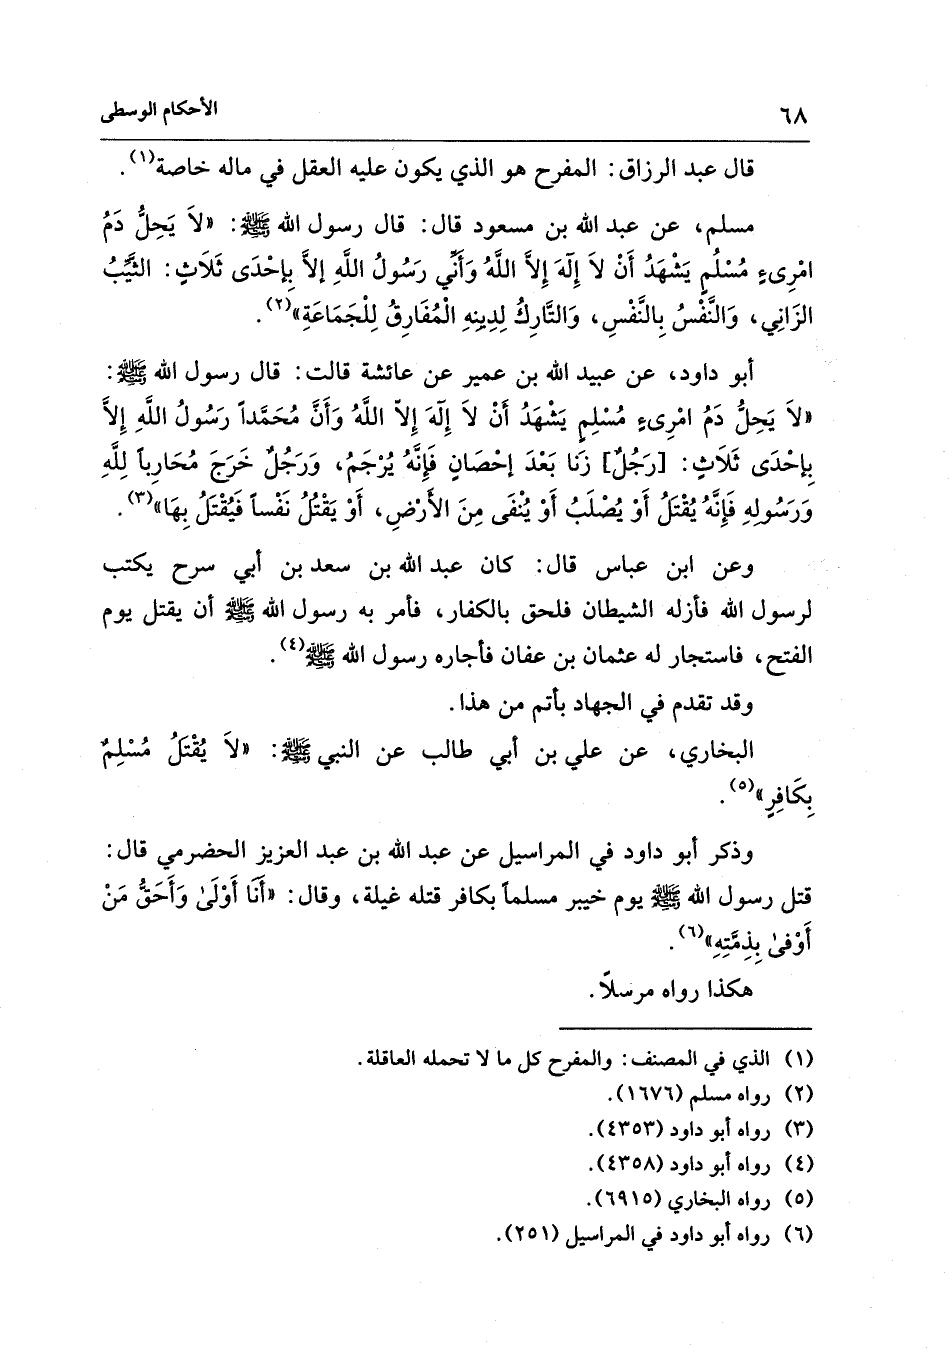 ٦٨ الأحكام الوسطى
قال عبد الرزاق: المفرح هو الذي يكون عليه العقل في ماله خاصة(١).
مسلم، عن عبد الله بن مسعود قال: قال رسول الله ﷺ: «لاَ يَحِلُّ دَمُ
امْرِىءٍ مُسْلُمٍ يَشْهَدُ أَنْ لاَ إِلَهَ إِلاَّ اللَّهُ وَأَنِّي رَسُولُ اللَّهِ إلاَّ بِإحْدَى ثَلاَثٍ: الثَّيِّبُ
الزَانِي، وَالنَّفْسُ بِالنَّفْسِ، وَالتَّارِكُ لِدِينِهِ الْمُفَارِقُ لِلْجَمَاعَةِ»(٢).
أبو داود، عن عبيد الله بن عمير عن عائشة قالت: قال رسول الله ﷺ:
«لاَ يَحِلُّ دَمُ امْرِىءٍ مُسْلِمٍ يَشْهَدُ أَنْ لاَ إِلَهَ إِلاّ اللَّهُ وَأَنَّ مُحَمَّداً رَسُولُ اللَّهِ إِلاَّ
بِإحْدَى ثَلاَثٍ: [رَجُلٌ] زَنا بَعْدَ إحْصَانٍ فَإِنَّهُ يُرْجَمُ، وَرَجُلٌ خَرَجَ مُحَارِباً لِلَّهِ
وَرَسُولِهِ فَإِنَّهُ يُقْتَلُ أَوْ يُصْلَبُ أَوْ يُنْفَى مِنَ الأَرْضِ، أَوْ يَقْتُلُ نَفْساً فَيُقْتَلُ بِهَا»(٣).
وعن ابن عباس قال: كان عبد الله بن سعد بن أبي سرح يكتب
لرسول الله فأزله الشيطان فلحق بالكفار، فأمر به رسول الله ﷺ أن يقتل يوم
الفتح، فاستجار له عثمان بن عفان فأجاره رسول الله ﷺ(٤).
وقد تقدم في الجهاد بأتم من هذا.
البخاري، عن علي بن أبي طالب عن النبي ﷺ: «لاَ يُقْتَلُ مُسْلِمٌ
بِكَافِرٍ»(٥).
وذكر أبو داود في المراسيل عن عبد الله بن عبد العزيز الحضرمي قال:
قتل رسول الله ﷺ يوم خيبر مسلماً بكافر قتله غيلة، وقال: «أَنَا أَوْلَىٰ وَأَحَقُّ مَنْ
أَوْفىٰ بِذِمَّتِهِ»(٦).
هكذا رواه مرسلاً.
(١) الذي في المصنف: والمفرح كل ما لا تحمله العاقلة.
(٢) رواه مسلم (١٦٧٦).
(٣) رواه أبو داود (٤٣٥٣).
(٤) رواه أبو داود (٤٣٥٨).
(٥) رواه البخاري (٦٩١٥).
(٦) رواه أبو داود في المراسيل (٢٥١).